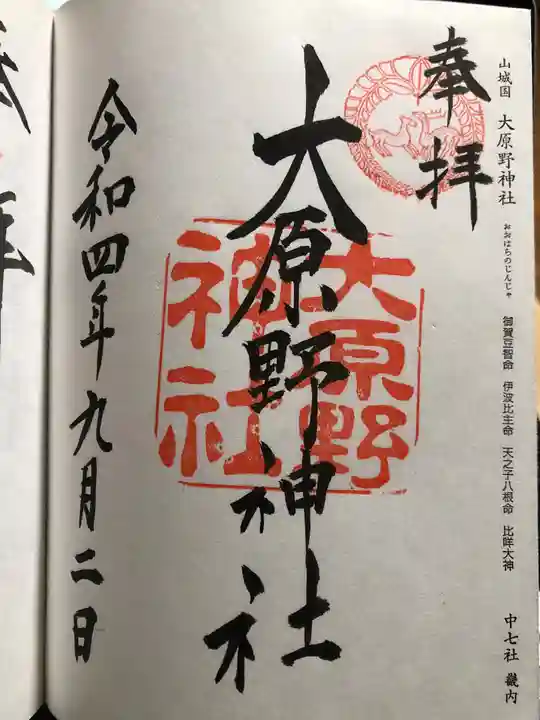 山城国 大原野神社 おおはらのじんじゃ 御賀豆智命 伊波比主命 天之子八根命 比咩大神 中七社 畿内
奉拝
大原野神社
大原野
神社
令和四年九月二日
拝